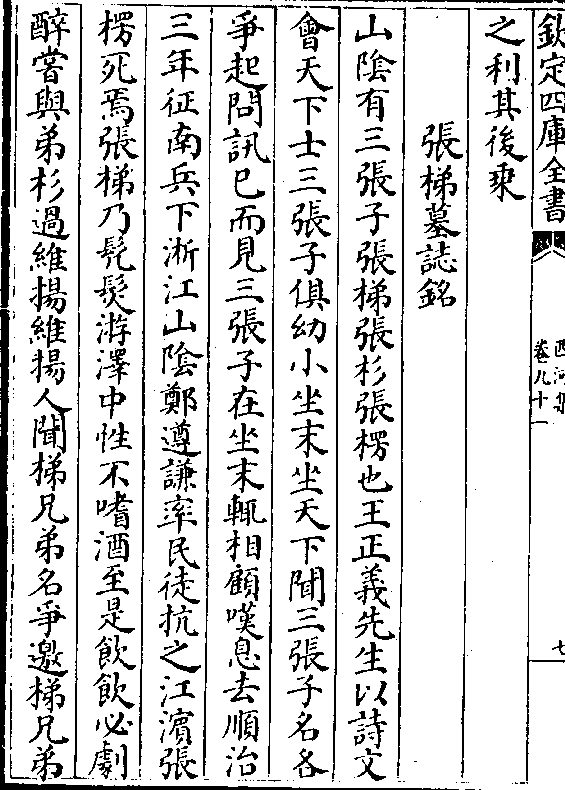 欽定四庫全書
西河集
卷九十一
七
之利其後乘
張梯墓誌銘
山陰有三張子張梯張杉張楞也王正義先生以詩文
會天下士三張子俱幼小坐末坐天下聞三張子名各
爭起問訊已而見三張子在坐末輒相顧嘆息去順治
三年征南兵下淅江山陰鄭遵謙率民徒抗之江濵張
楞死焉張梯乃髠髮游澤中性不嗜酒至是飲飲必劇
醉嘗與弟杉過維揚維揚人聞梯兄弟名爭邀梯兄弟